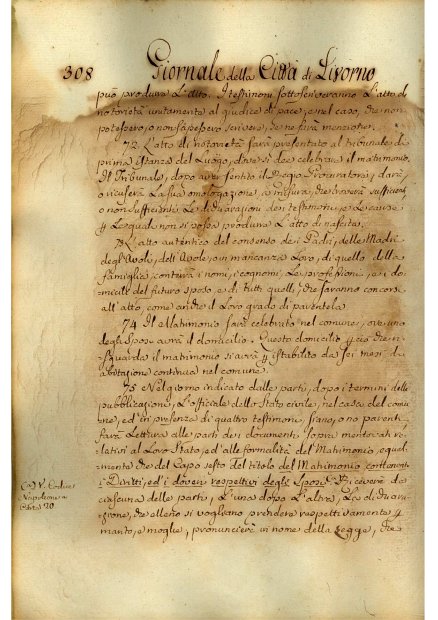 308 Giornale della Città di Livorno
può produrre L'atto. I testimoni sottoscriveranno L'atto di
notorietà unitamente al giudice di pace, e nel caso, che non
potessero, o non sapessero scrivere, se ne farà menzione.
72. L'atto di notorietà sarà presentato al tribunale di
prima istanza del Luogo, dove si dee celebrare il matrimonio.
Il Tribunale, dopo aver sentito il Regio Procuratore, darà,
o ricuserà La sua omologazione, a misura, che troverà sufficienti,
o non sufficienti Le dichiarazioni dei testimoni, e Le cause
p Le quali non si possa produrre L'atto di nascita.
73 L'atto autentico del consenso dei Padri, delle Madri
degl'Avoli, dell'Avole, o in mancanza Loro, di quello della
famiglia, conterrà i nomi, i cognomi, Le professioni, e i do
micili del futuro sposo, e di tutti quelli, che saranno concorsi
all'atto, come anche il Loro grado di parentela.
74 Il Matrimonio sarà celebrato nel comune, ove uno
degli Sposi avrà il domicilio. Questo domicilio p ciò che ri
sguarda il matrimonio si avrà p istabilito da sei mesi d'a
bitazione continua nel comune.
75 Nel giorno indicato dalle parti, dopo i termini delle
pubblicazioni, L'officiale dello Stato civile, nel casa del comu
ne, ed in presenza di quattro testimoni, siano, o no parenti
farà Lettura alle parti dei documenti sopra mentovati re
lativi al Loro Stato, ed alle formalità del Matrimonio, e qual
mente che del Capo sesto del titolo del Matrimonio contenente
i Diritti, ed i doveri respettivi degli Sposi. Riceverà da
ciascuna delle parti, L'una dopo L'altra, La dichiara
zione, che elleno si vogliono prendere respettivamente p
marito, e moglie, pronuncierà in nome della Legge, che
Codice
Napoleone